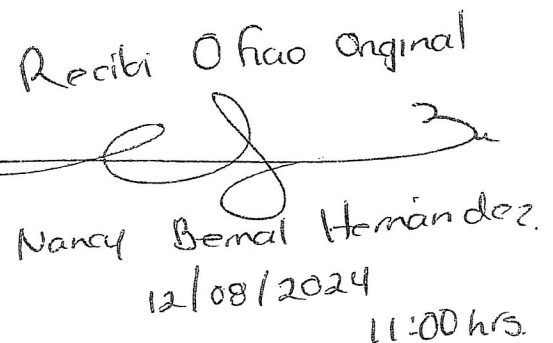 Recibi Oficio Original
Nancy Bernal Hernández.
12/08/2024
11:00 hrs.